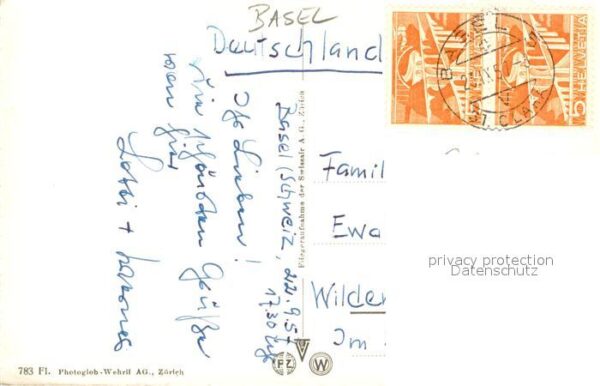 BASEL
Deutschland
Basel (Schweiz, 22.9.5
17.30 Uhr
Ihr Lieben!
Die schönsten Grüße
von hier
Lotti +
Famil
Ewa
Wilden
Im
HELVETIA
5
BASEL
ST. CLARA
Fliegeraufnahme der Swissair A. G., Zürich
privacy protection
Datenschutz
PZ
W
783 Fl. Photoglob-Wehrli AG., Zürich